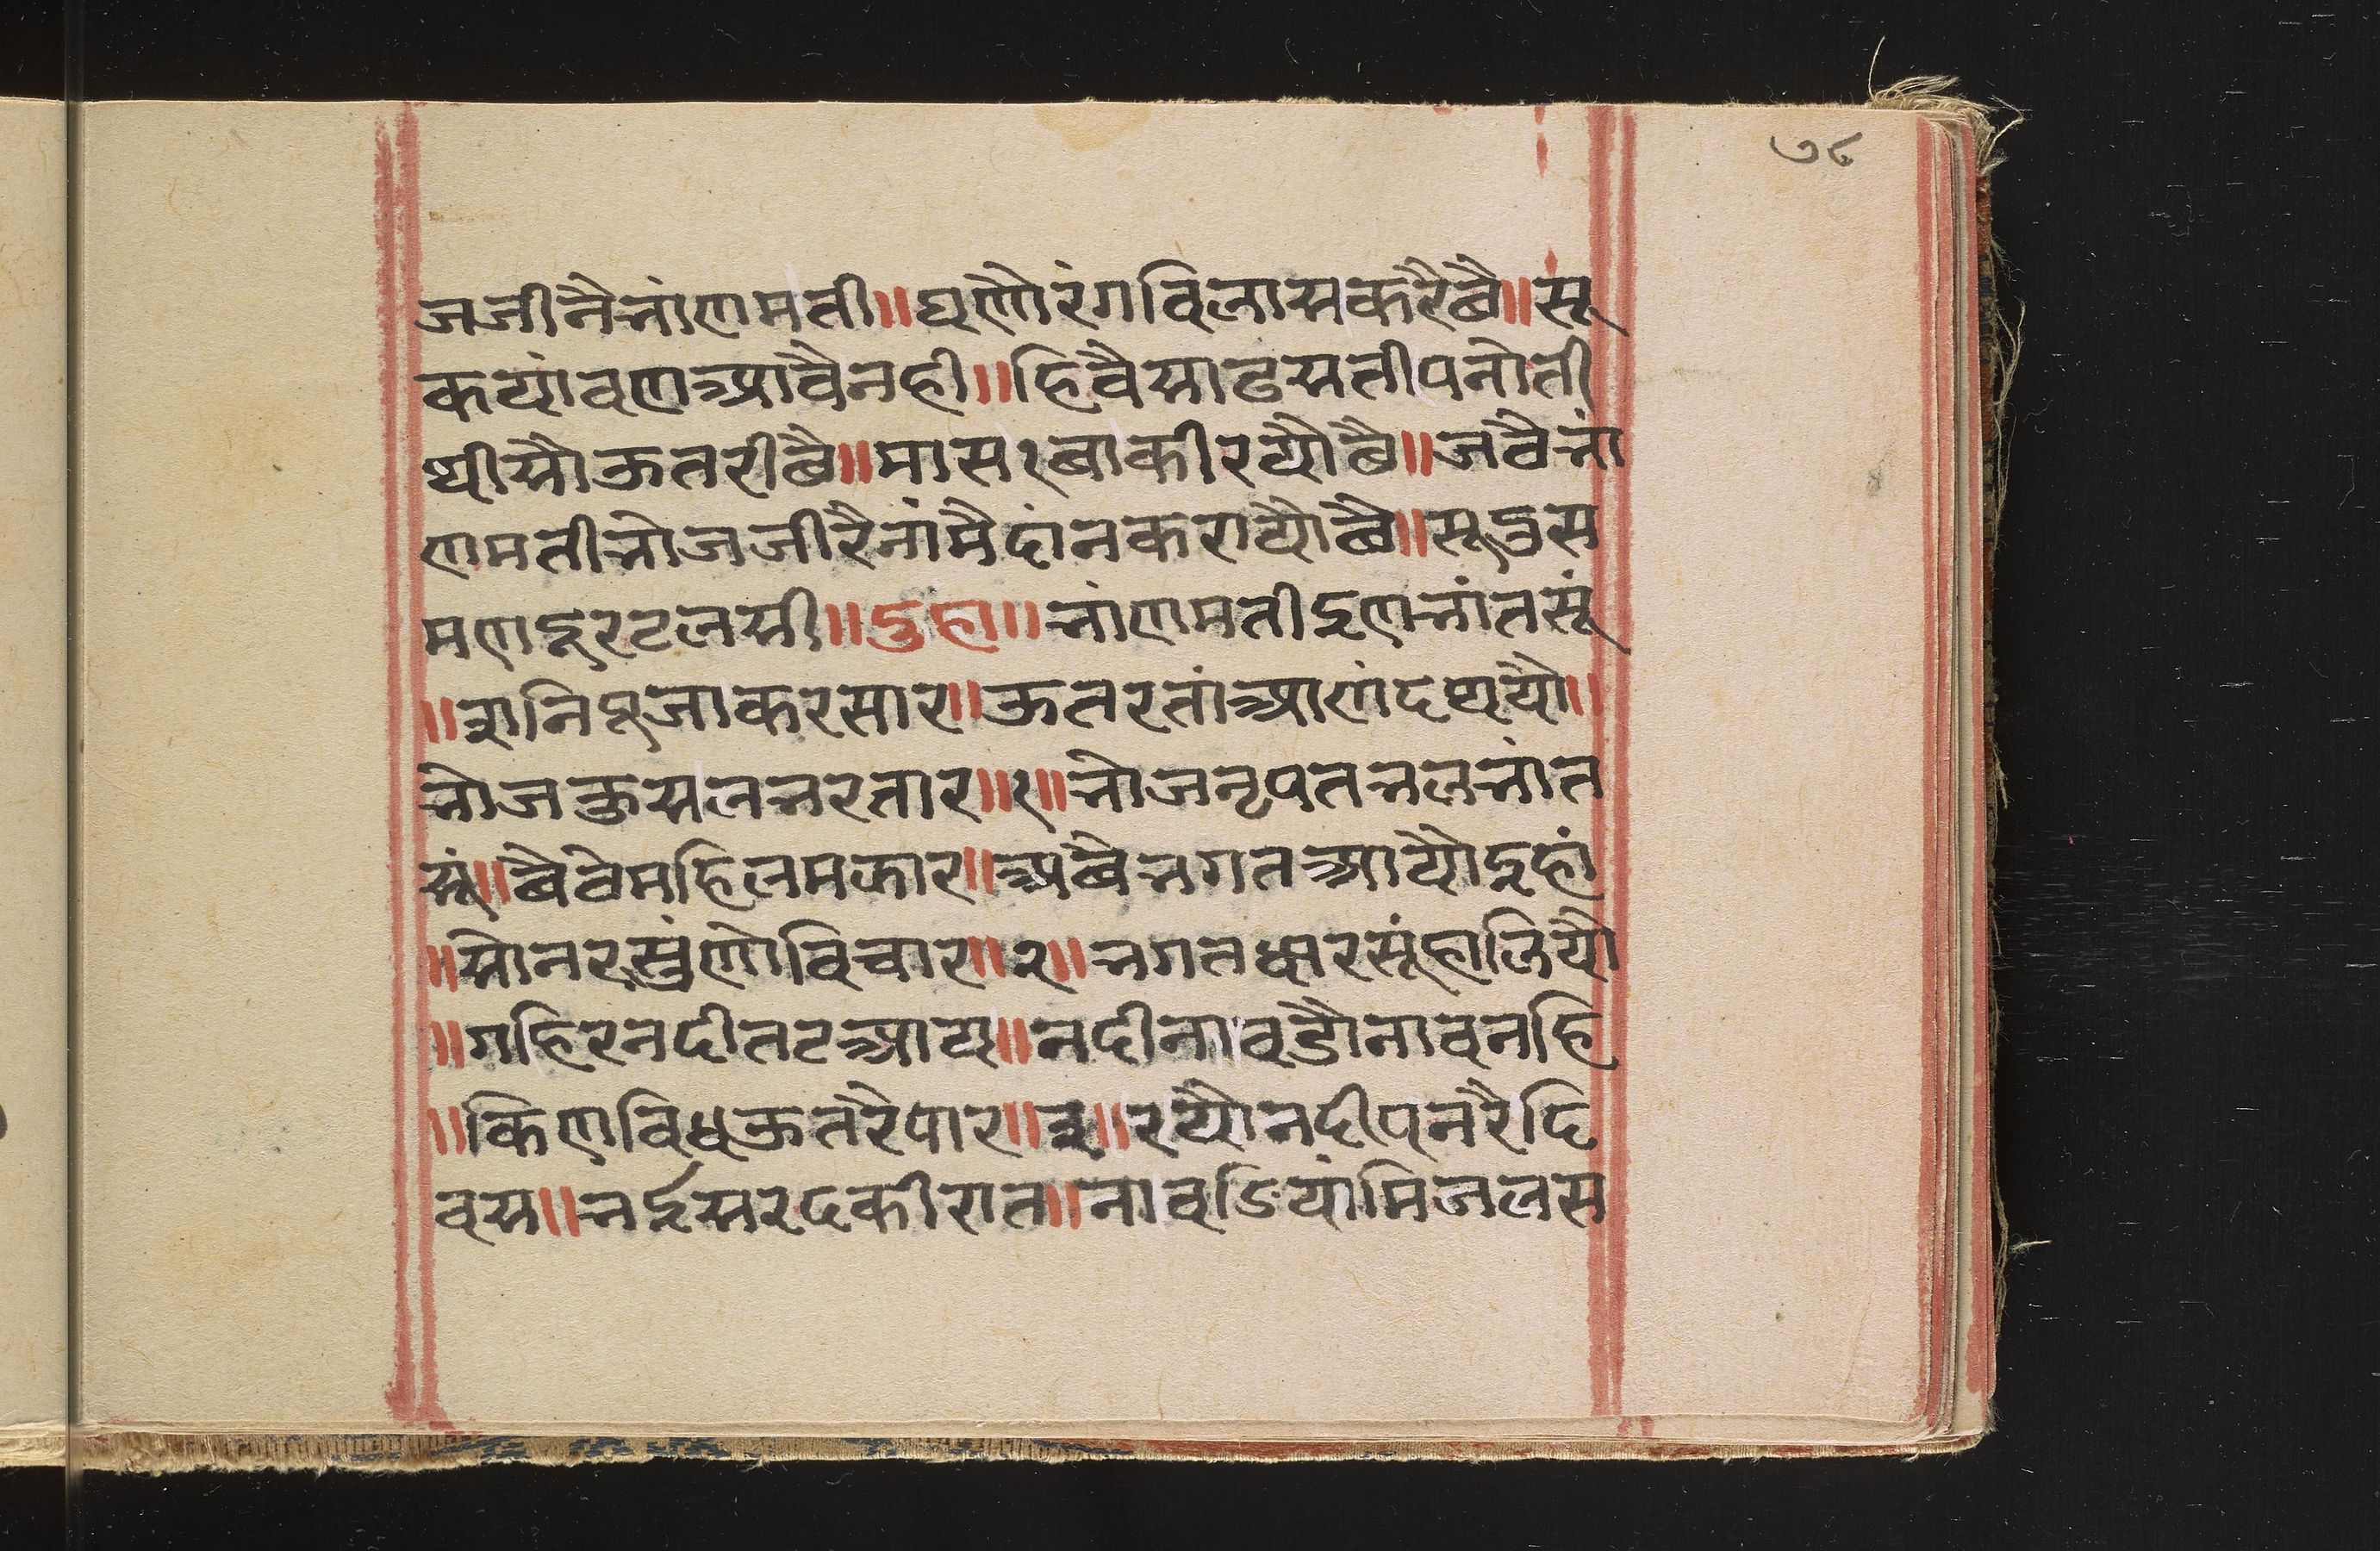 ७८
जजीनैभांणमती॥घणैरंगविलासकरैबै॥सू
कयांवणआवैनही॥हिवैसाढसतीपनोती
थीसौऊतरीबै॥मास१बाकीरयौबै॥जवैभां
णमतीभोजजीरैनांमैदांनकरायौबै॥सूडुस
मणदूरटलसी॥दुहा॥भांणमतीइणभांतसूं
॥शनिपूजाकरसार॥ऊतरतांआणंदथयौ॥
भोजकुसलभरतार॥१॥भोजनृपतभलभांत
सूं॥बैवेमहिलमझार॥अबैभगतआयौइहां
॥सोनरसुंणोविचार॥२॥भगतधारसूंहालियौ
॥गहिरनदीतटआय॥नदीनावडौनावनहि
॥किणविधऊतरैपार॥३॥रयौनदीपनरैदि
वस॥भईसरदकीरात॥नावडियांमिजलस